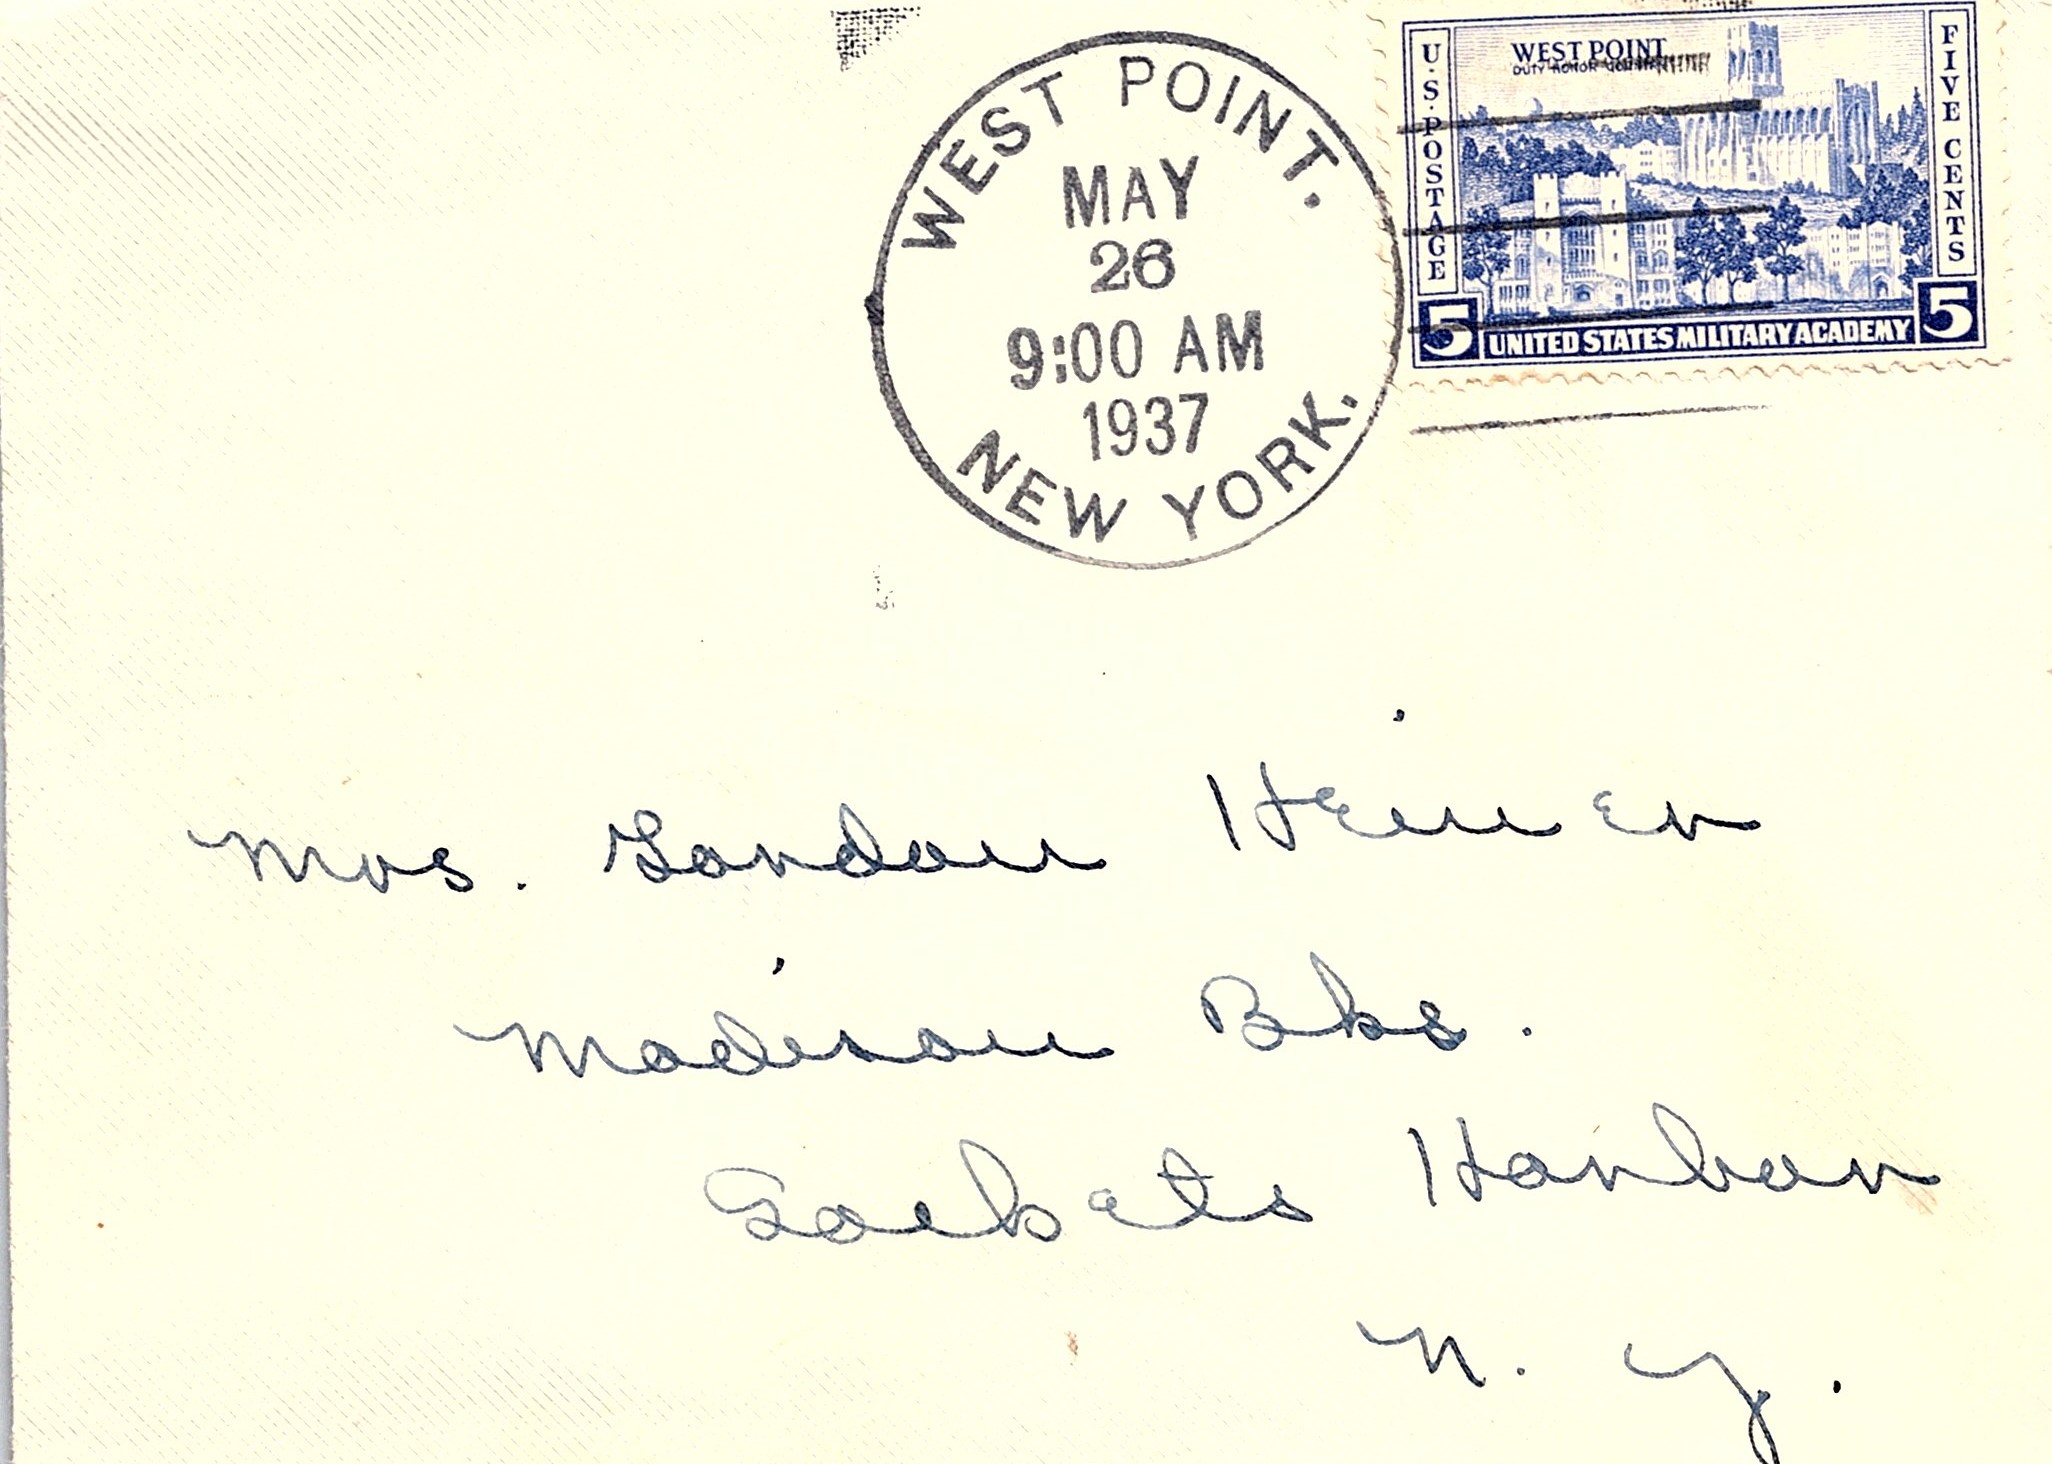 WEST POINT.
MAY
26
9:00 AM
1937
NEW YORK.
WEST POINT
DUTY HONOR COUNTRY
U.S. POSTAGE
FIVE CENTS
5 UNITED STATES MILITARY ACADEMY 5
Mrs. Gordon Heiner
Madison Bks.
Sackets Harbor
N. Y.